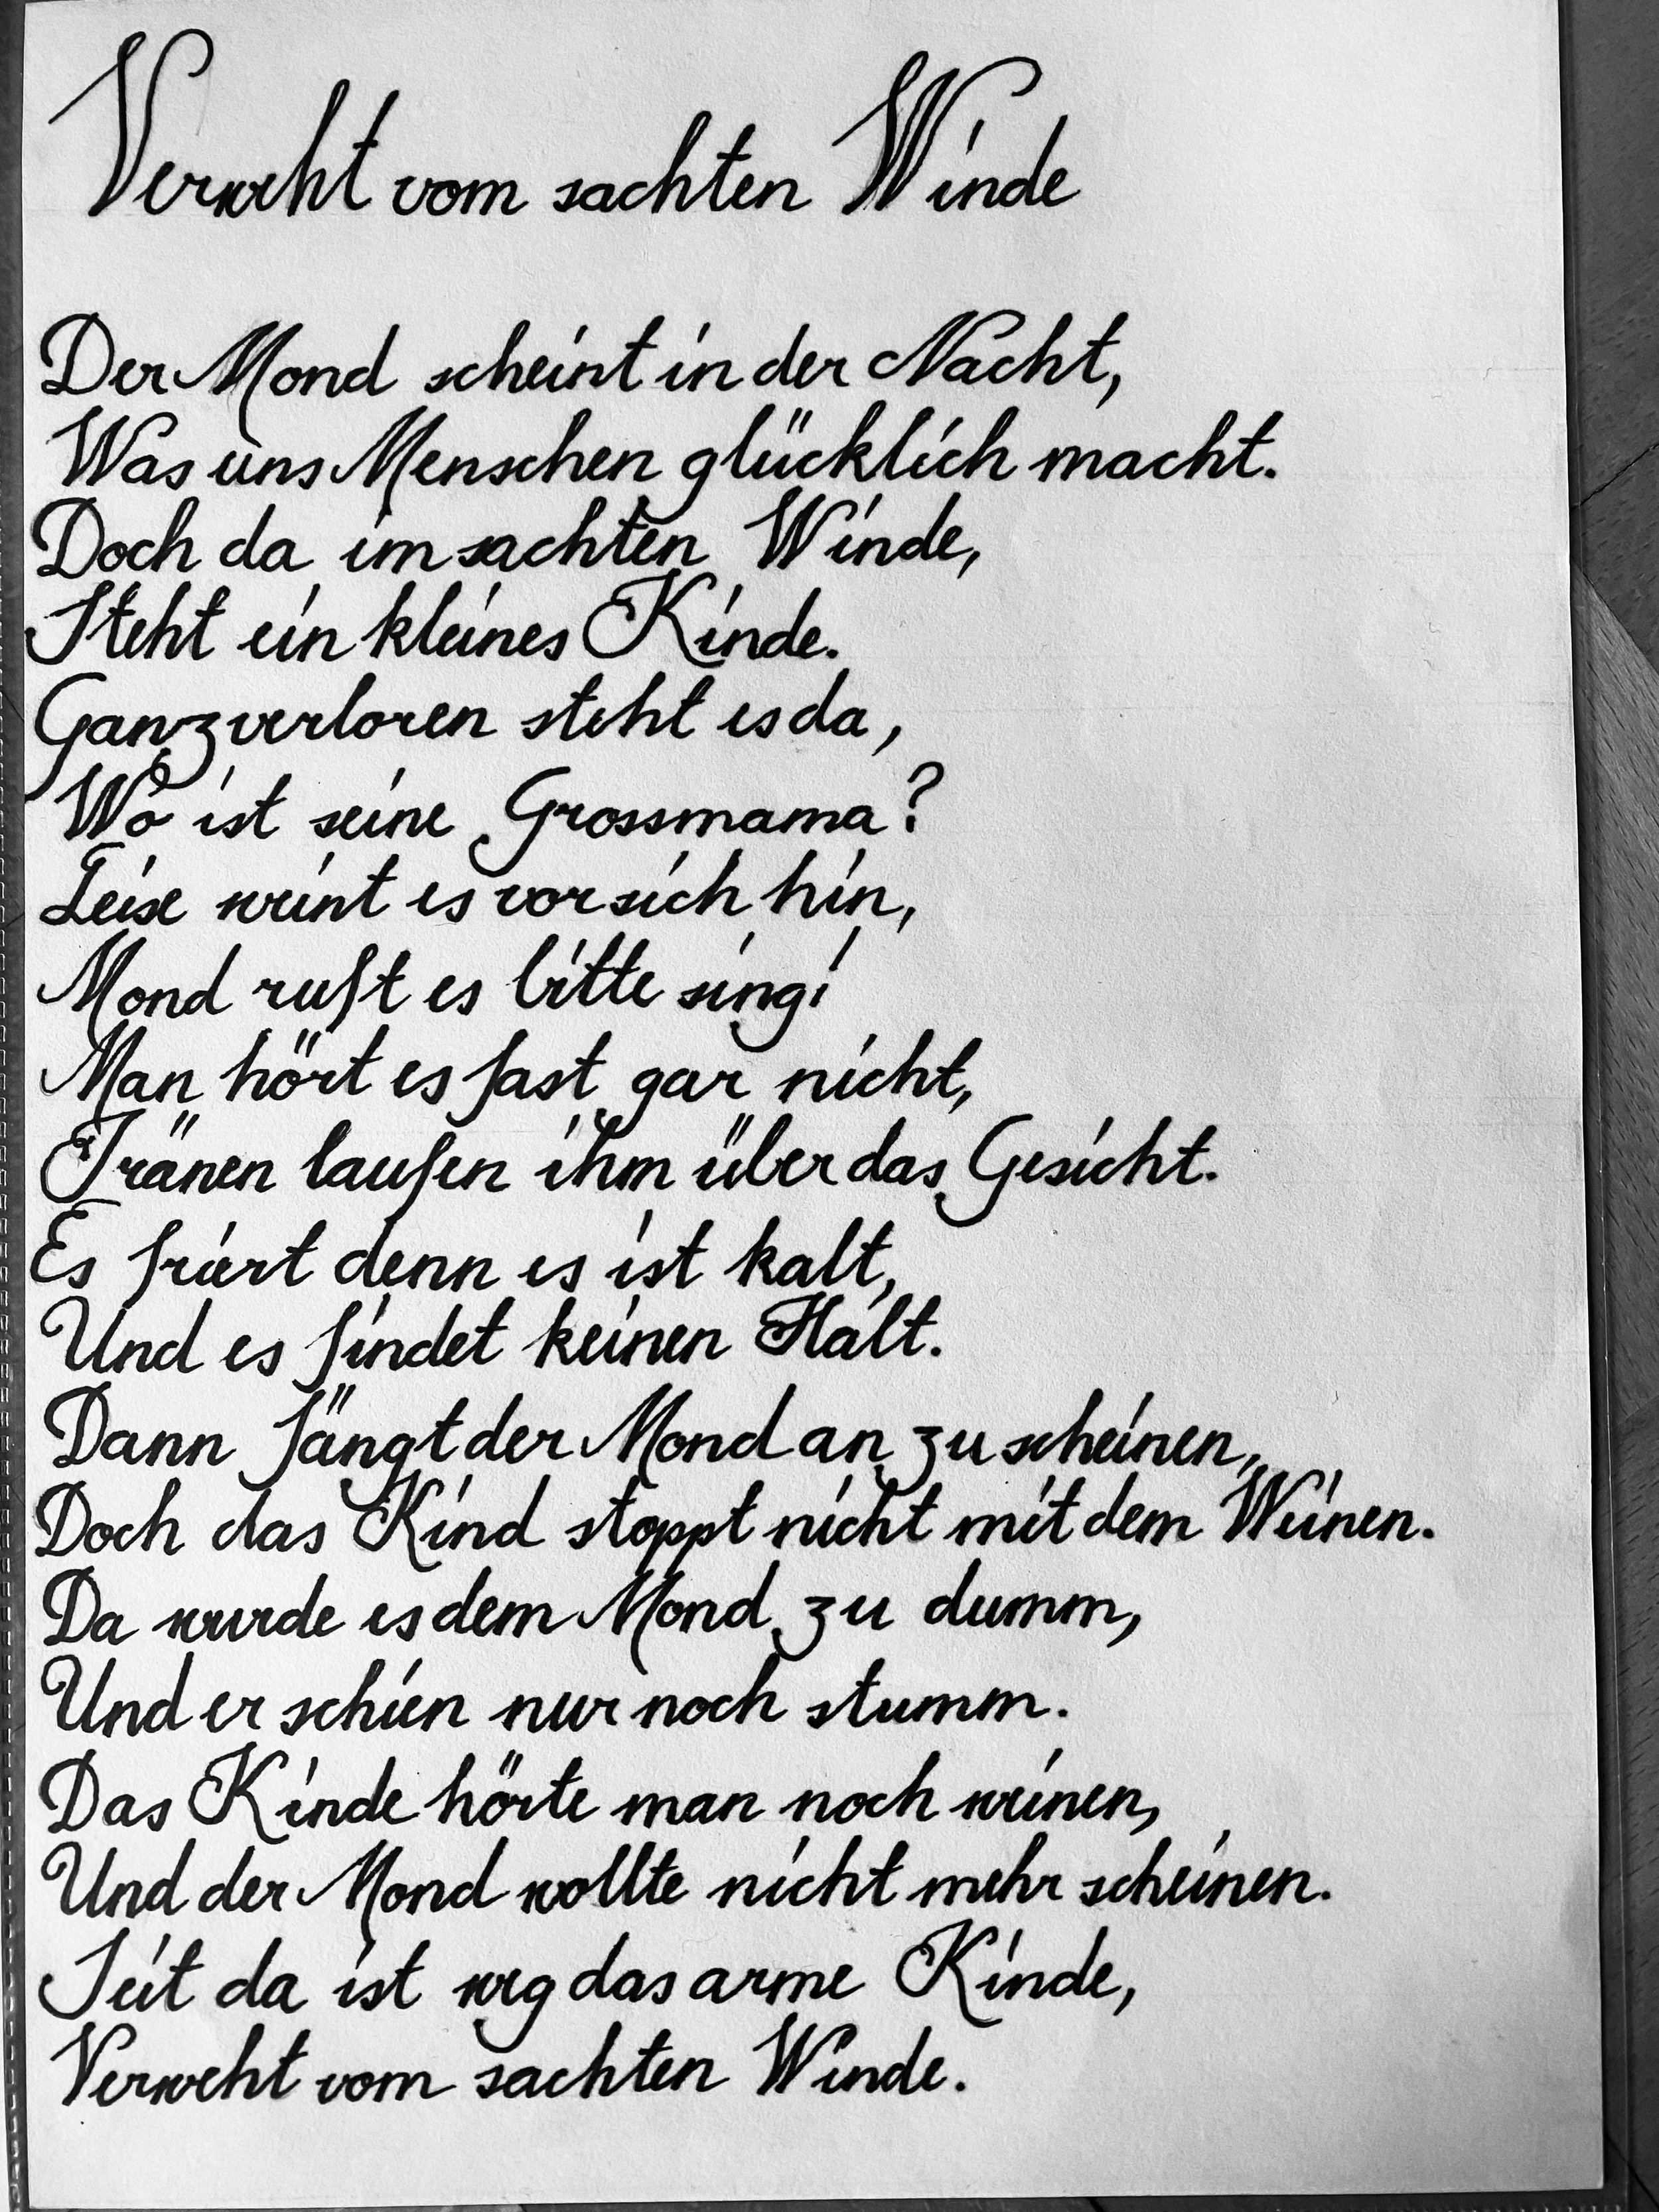 Verweht vom sachten Winde
Der Mond scheint in der Nacht,
Was uns Menschen glücklich macht.
Doch da im sachten Winde,
Steht ein kleines Kinde.
Ganz verloren steht es da,
Wo ist seine Grossmama?
Leise weint es vor sich hin,
Mond ruft es bitte sing!
Man hört es fast gar nicht,
Tränen laufen ihm über das Gesicht.
Es friert denn es ist kalt,
Und es findet keinen Halt.
Dann fängt der Mond an zu scheinen,
Doch das Kind stoppt nicht mit dem Weinen.
Da wurde es dem Mond zu dumm,
Und er schien nur noch stumm.
Das Kinde hörte man noch weinen,
Und der Mond wollte nicht mehr scheinen.
Seit da ist weg das arme Kinde,
Verweht vom sachten Winde.